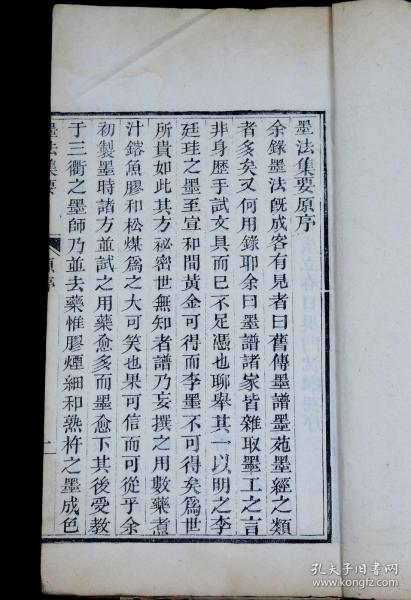 墨法集要原序
余錄墨法旣成客有見者曰舊傳墨譜墨苑墨經之類
者多矣又何用錄耶余曰墨譜諸家皆雜取墨工之言
非身歷手試文具而已不足憑也聊舉其一以明之李
廷珪之墨至宣和間黃金可得而李墨不可得矣爲世
所貴如此其方祕密世無知者譜乃妄撰之用數藥煮
汁鎔魚膠和松煤爲之大可笑也果可信而可從乎余
初製墨時諸方並試之用藥愈多而墨愈下其後受教
于三衢之墨師乃並去藥惟膠煙細和熟杵之墨成色
墨法集要
原序
一
孔夫子旧书网
www.kongfz.com